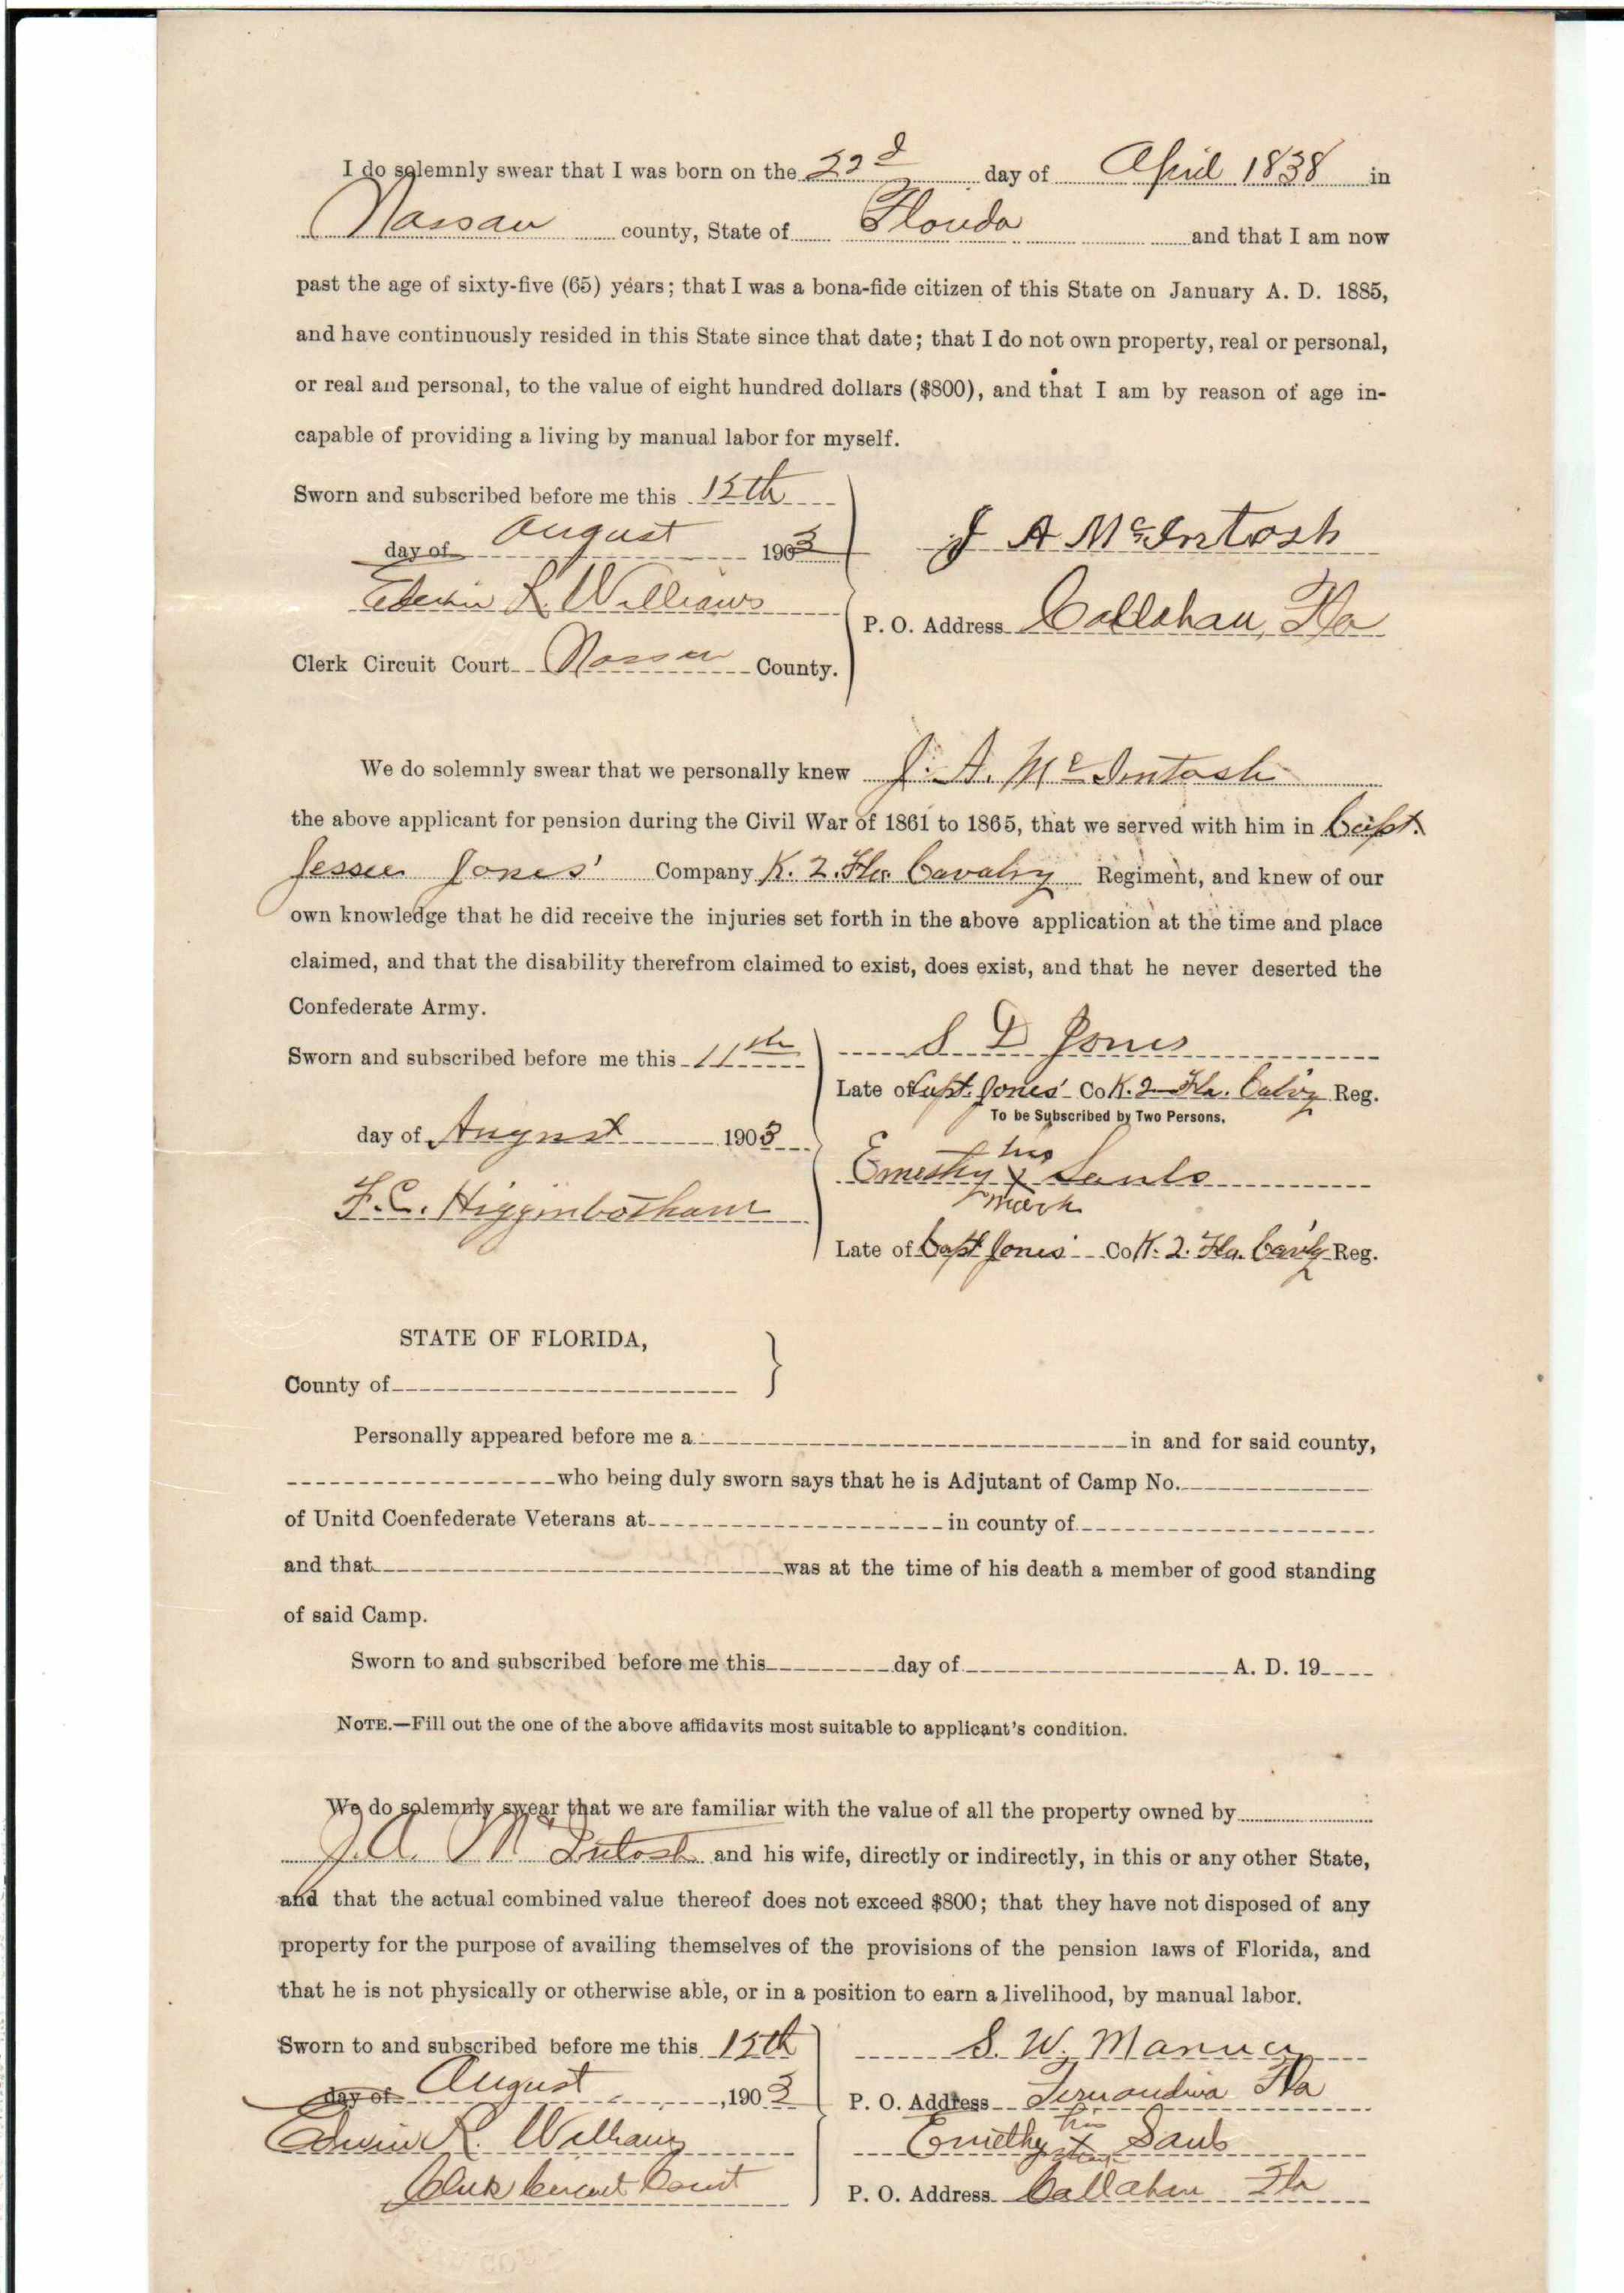 I do solemnly swear that I was born on the 22d day of April 1838 in
Nassau county, State of Florida and that I am now
past the age of sixty-five (65) years; that I was a bona-fide citizen of this State on January A. D. 1885,
and have continuously resided in this State since that date; that I do not own property, real or personal,
or real and personal, to the value of eight hundred dollars ($800), and that I am by reason of age in-
capable of providing a living by manual labor for myself.
Sworn and subscribed before me this 15th
day of August 1903
J A McIntosh
Edwin R. Williams
P. O. Address Callahan, Fla
Clerk Circuit Court Nassau County.
We do solemnly swear that we personally knew J. A. McIntosh
the above applicant for pension during the Civil War of 1861 to 1865, that we served with him in Capt.
Jessee Jones' Company K. 2. Fla. Cavalry Regiment, and knew of our
own knowledge that he did receive the injuries set forth in the above application at the time and place
claimed, and that the disability therefrom claimed to exist, does exist, and that he never deserted the
Confederate Army.
Sworn and subscribed before me this 11th
S D Jones
Late of Capt. Jones' Co K. 2 Fla. Calvy Reg.
To be Subscribed by Two Persons.
day of August 1903
his
x Sauls
mark
F. C. Higginbotham
Late of Capt Jones' Co K. 2. Fla. Cavly Reg.
STATE OF FLORIDA,
County of
Personally appeared before me a in and for said county,
who being duly sworn says that he is Adjutant of Camp No.
of Unitd Coenfederate Veterans at in county of
and that was at the time of his death a member of good standing
of said Camp.
Sworn to and subscribed before me this day of A. D. 19
NOTE.—Fill out the one of the above affidavits most suitable to applicant's condition.
We do solemnly swear that we are familiar with the value of all the property owned by
J. A. McIntosh and his wife, directly or indirectly, in this or any other State,
and that the actual combined value thereof does not exceed $800; that they have not disposed of any
property for the purpose of availing themselves of the provisions of the pension laws of Florida, and
that he is not physically or otherwise able, or in a position to earn a livelihood, by manual labor.
Sworn to and subscribed before me this 15th
S. W. Manucy
day of August , 1903
P. O. Address Fernandina Fla
Edwin R. Williams
his
x Sauls
Clerk Circuit Court
P. O. Address Callahan Fla